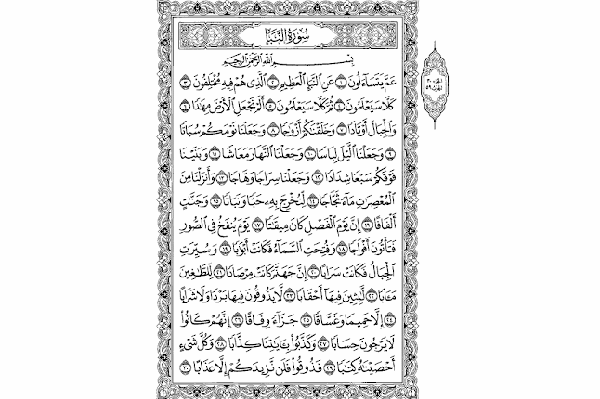 سورة النبإ
بسم الله الرحمن الرحيم
عَمَّ يَتَسَآءَلُونَ ١ عَنِ ٱلنَّبَإِ ٱلْعَظِيمِ ٢ ٱلَّذِى هُمْ فِيهِ مُخْتَلِفُونَ ٣
كَلَّا سَيَعْلَمُونَ ٤ ثُمَّ كَلَّا سَيَعْلَمُونَ ٥ أَلَمْ نَجْعَلِ ٱلْأَرْضَ مِهَٰدًا ٦
وَٱلْجِبَالَ أَوْتَادًا ٧ وَخَلَقْنَٰكُمْ أَزْوَٰجًا ٨ وَجَعَلْنَا نَوْمَكُمْ سُبَاتًا
٩ وَجَعَلْنَا ٱلَّيْلَ لِبَاسًا ١٠ وَجَعَلْنَا ٱلنَّهَارَ مَعَاشًا ١١ وَبَنَيْنَا
فَوْقَكُمْ سَبْعًا شِدَادًا ١٢ وَجَعَلْنَا سِرَاجًا وَهَّاجًا ١٣ وَأَنزَلْنَا مِنَ
ٱلْمُعْصِرَٰتِ مَآءً ثَجَّاجًا ١٤ لِّنُخْرِجَ بِهِۦ حَبًّا وَنَبَاتًا ١٥ وَجَنَّٰتٍ
أَلْفَافًا ١٦ إِنَّ يَوْمَ ٱلْفَصْلِ كَانَ مِيقَٰتًا ١٧ يَوْمَ يُنفَخُ فِى ٱلصُّورِ
فَتَأْتُونَ أَفْوَاجًا ١٨ وَفُتِحَتِ ٱلسَّمَآءُ فَكَانَتْ أَبْوَٰبًا ١٩ وَسُيِّرَتِ
ٱلْجِبَالُ فَكَانَتْ سَرَابًا ٢٠ إِنَّ جَهَنَّمَ كَانَتْ مِرْصَادًا ٢١ لِّلطَّٰغِينَ
مَـَٔابًا ٢٢ لَّٰبِثِينَ فِيهَآ أَحْقَابًا ٢٣ لَّا يَذُوقُونَ فِيهَا بَرْدًا وَلَا شَرَابًا
٢٤ إِلَّا حَمِيمًا وَغَسَّاقًا ٢٥ جَزَآءً وِفَاقًا ٢٦ إِنَّهُمْ كَانُوا۟
لَا يَرْجُونَ حِسَابًا ٢٧ وَكَذَّبُوا۟ بِـَٔايَٰتِنَا كِذَّابًا ٢٨ وَكُلَّ شَىْءٍ
أَحْصَيْنَٰهُ كِتَٰبًا ٢٩ فَذُوقُوا۟ فَلَن نَّزِيدَكُمْ إِلَّا عَذَابًا ٣٠
الجزء ٣٠
الحزب ٥٩